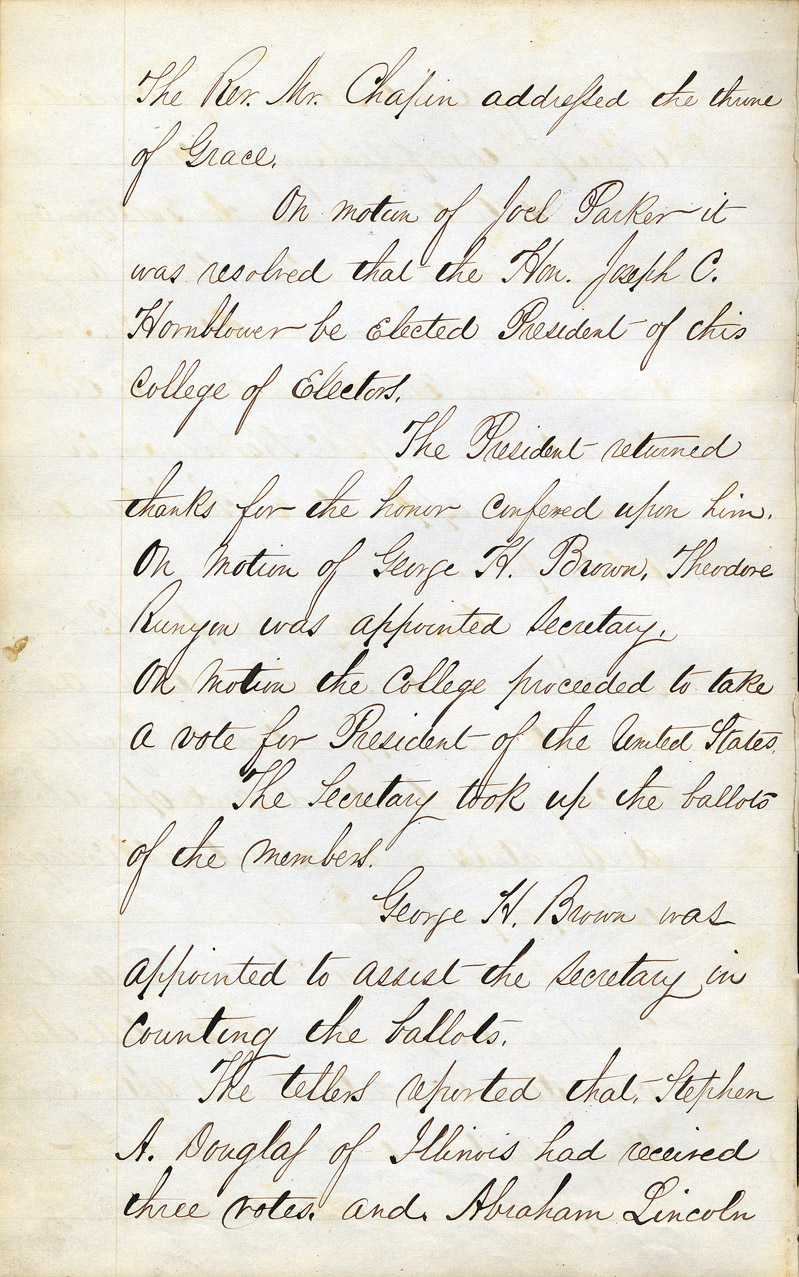 The Rev. Mr. Chapin addressed the throne
of Grace.
On motion of Joel Parker it
was resolved that the Hon. Joseph C.
Hornblower be Elected President of this
College of Electors.
The President returned
thanks for the honor confered upon him.
On motion of George H. Brown, Theodore
Runyon was appointed Secretary.
On motion the College proceeded to take
a vote for President of the United States.
The Secretary took up the ballots
of the members.
George H. Brown was
appointed to assist the Secretary in
Counting the ballots.
The tellers reported that, Stephen
A. Douglass of Illinois had received
three votes. and. Abraham Lincoln